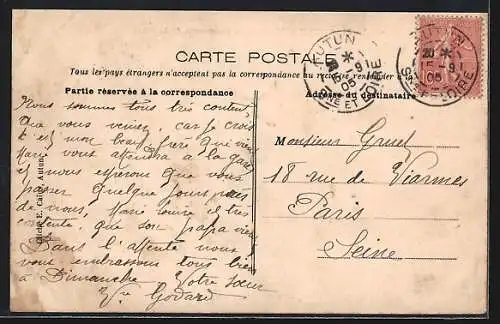 CARTE POSTALE
Tous les pays étrangers n'acceptent pas la correspondance au recto, se renseigner à la
Partie réservée à la correspondance
Adresse du destinataire
AUTUN
SAÔNE ET LOIRE
AUTUN
20
05
Nous sommes tous très content
que vous veniez, car je crois
c est mon beau frère qui vien
Marie vous attendra à la gare
et nous espérons que vous
passer quelque jours près
de vous, Marie Louise est très
contente, que son papa vien
Dans l'attente nous
vous embrassons tous bien
à Dimanche Votre sœur
Vve Godard
Monsieur Gruel
18 rue de Viarmes
Paris
Seine